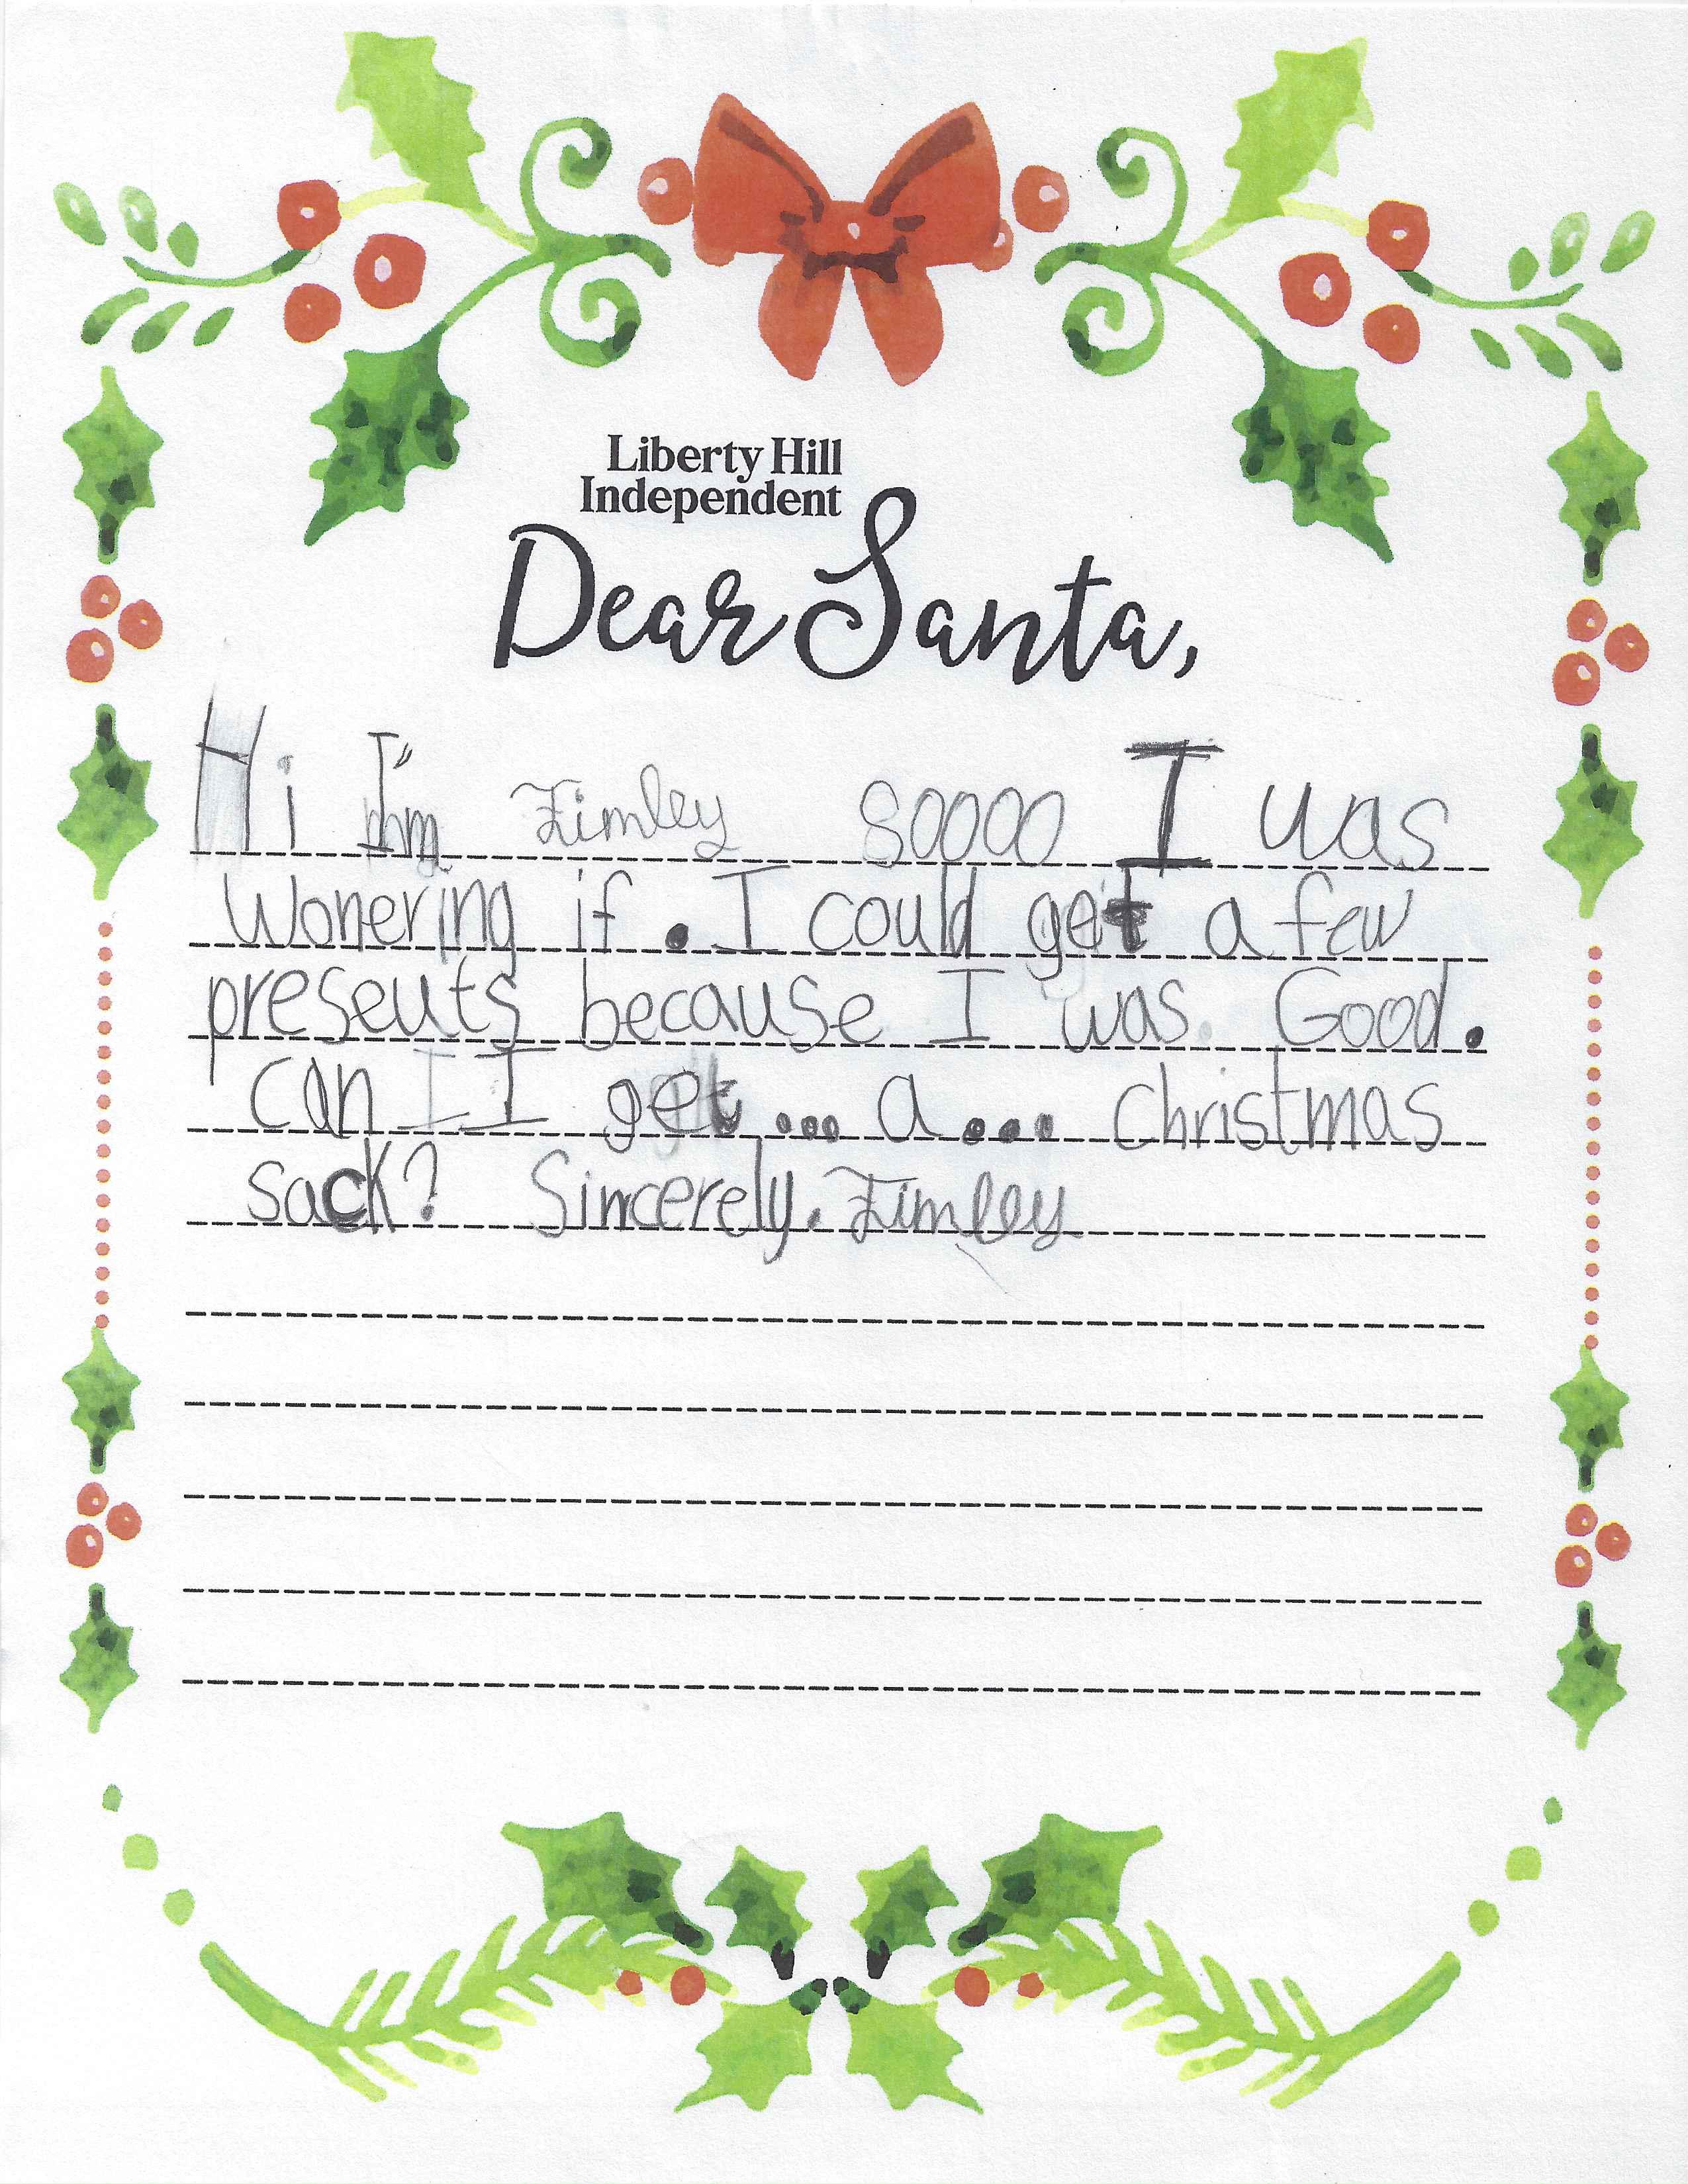 Liberty Hill
Independent
Dear Santa,
Hi I'm Finley soooo I was
wonering if . I could get a few
presents because I was Good.
can I I get ... a ... christmas
sack? Sincerely. Finley